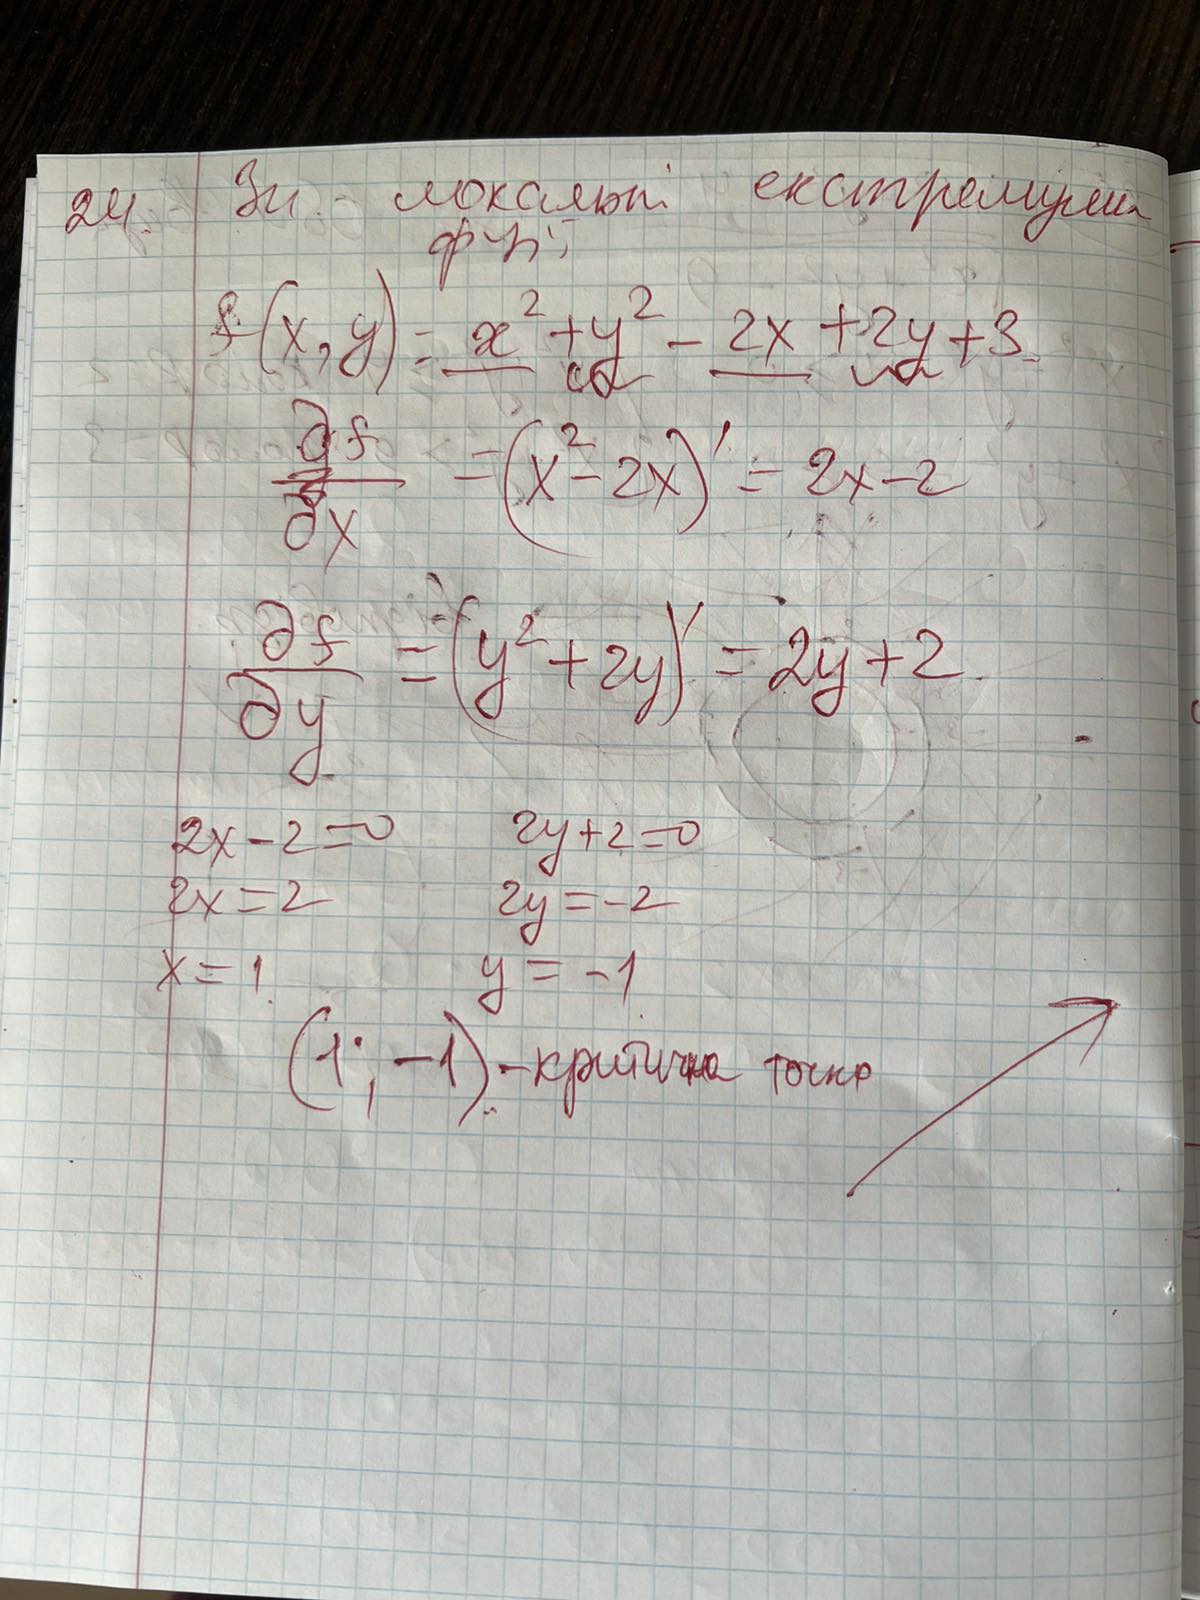 24. Зн. локальні екстремуми
ф-ції
f(x, y) = x² + y² - 2x + 2y + 3
∂f/∂x = (x² - 2x)' = 2x - 2
∂f/∂y = (y² + 2y)' = 2y + 2
2x - 2 = 0 2y + 2 = 0
2x = 2 2y = -2
x = 1 y = -1
(1; -1) - критична точка